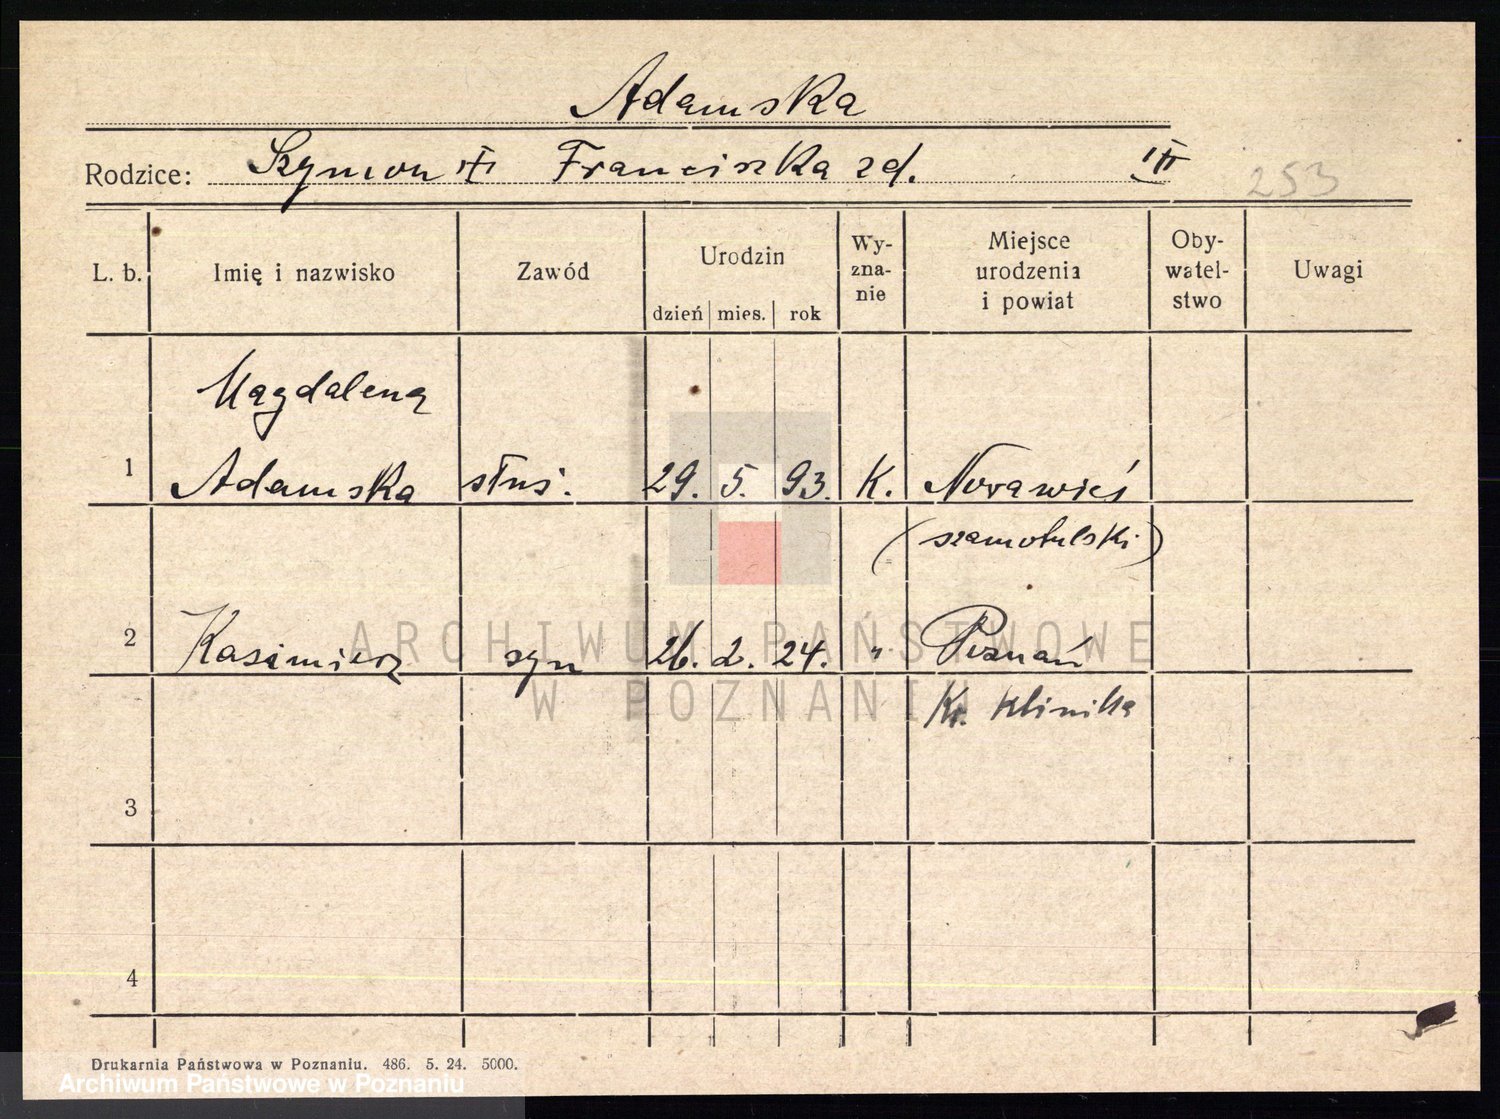 Adamska
Rodzice: Szymon ‡ Franciszka zd.
253
L. b. Imię i nazwisko Zawód Urodzin Wy-zna-nie Miejsce urodzenia i powiat Oby-watel-stwo Uwagi
dzień mies. rok
Magdalena
1 Adamska służ. 29. 5. 93. K. Nowawieś
(szamotulski)
2 Kasimierz syn 26. 2. 24. " Poznań
Kr. Klinika
3
4
ARCHIWUM PAŃSTWOWE
W POZNANIU
Drukarnia Państwowa w Poznaniu. 486. 5. 24. 5000.
Archiwum Państwowe w Poznaniu